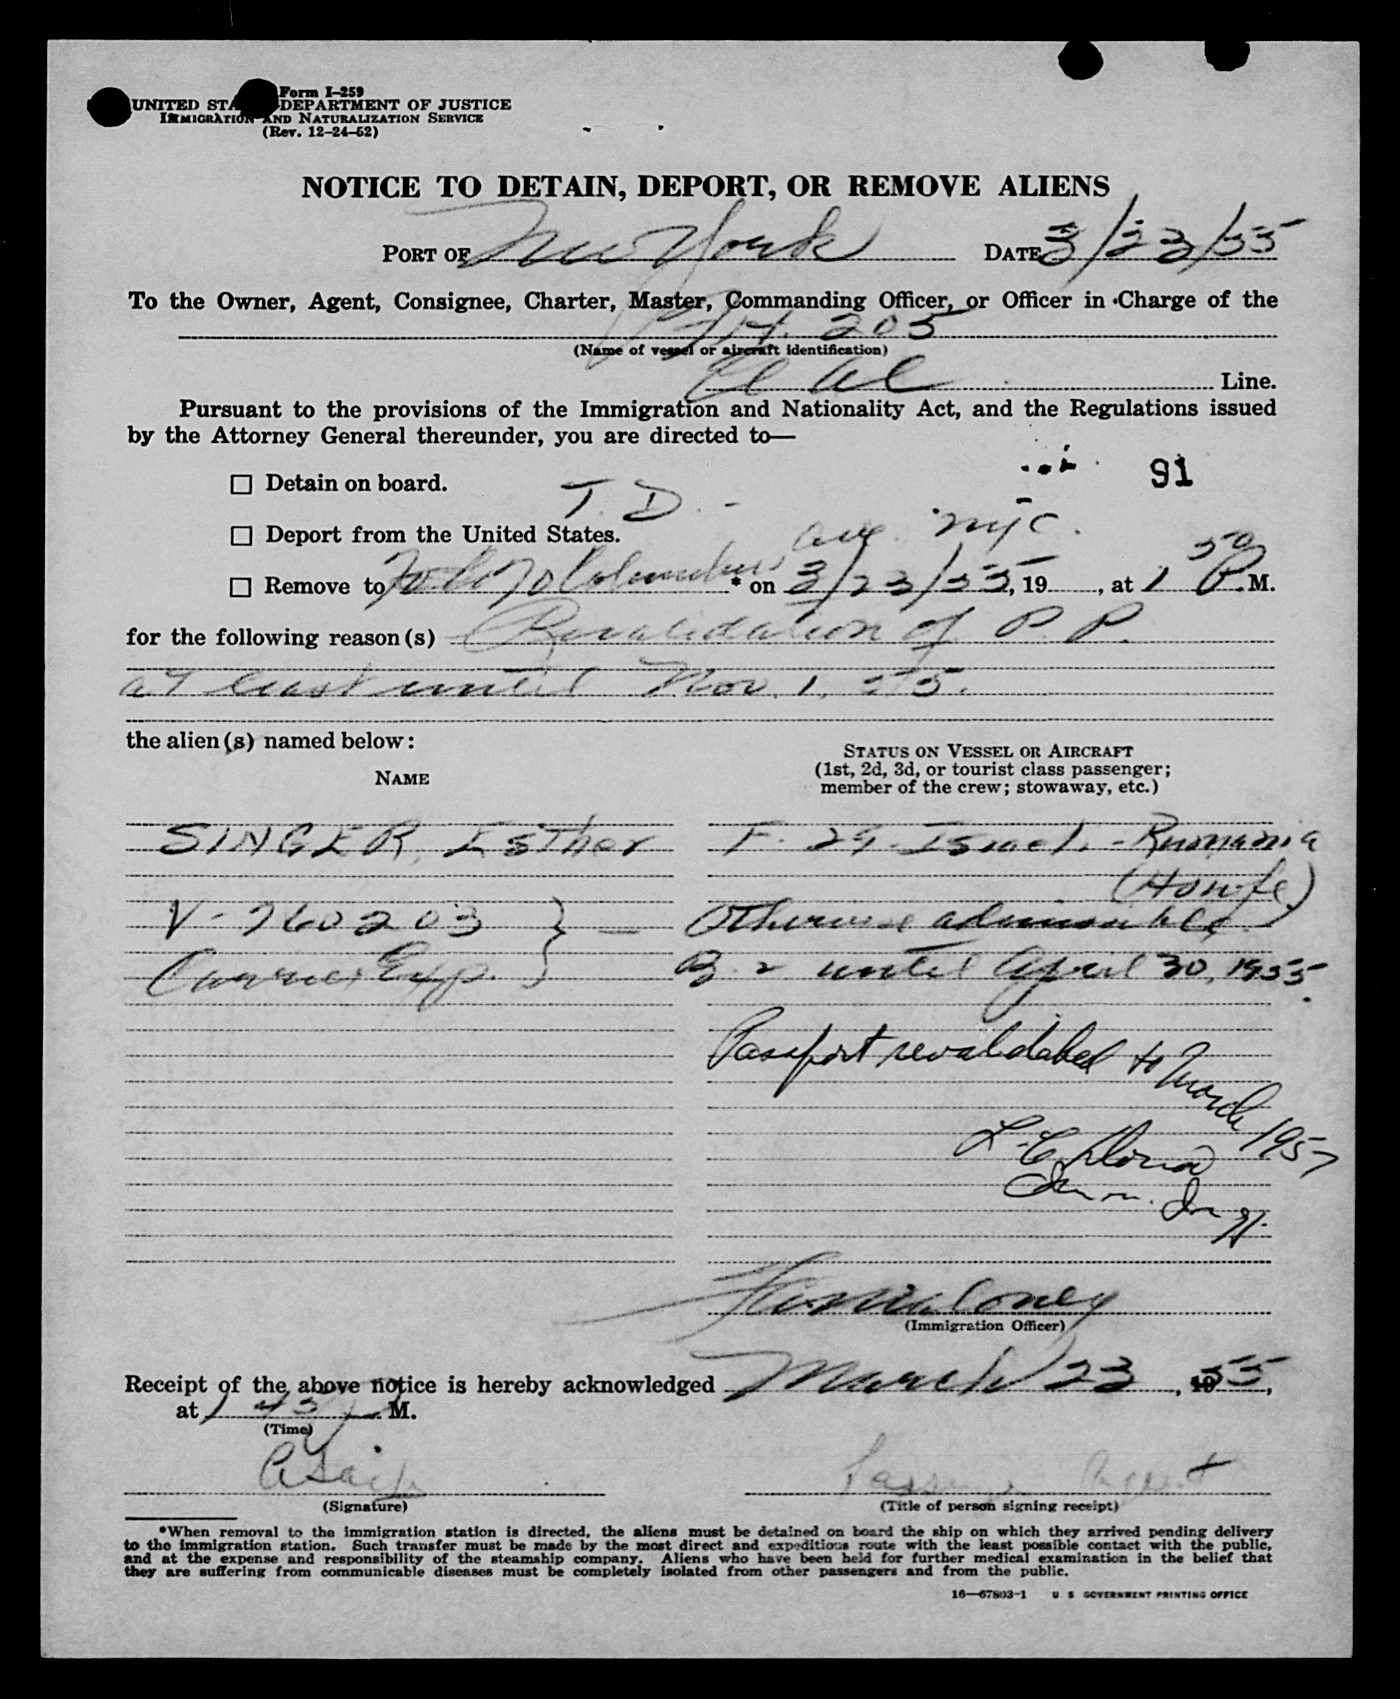 Form I-259
UNITED STATES DEPARTMENT OF JUSTICE
IMMIGRATION AND NATURALIZATION SERVICE
(Rev. 12-24-52)
NOTICE TO DETAIN, DEPORT, OR REMOVE ALIENS
PORT OF New York DATE 3/23/55
To the Owner, Agent, Consignee, Charter, Master, Commanding Officer, or Officer in Charge of the
205
(Name of vessel or aircraft identification)
El Al Line.
Pursuant to the provisions of the Immigration and Nationality Act, and the Regulations issued
by the Attorney General thereunder, you are directed to—
91
☐ Detain on board.
T. D. -
☐ Deport from the United States.
ave. NYC.
☐ Remove to 70 Columbus * on 3/23/55, 19 , at 1 50 P.M.
for the following reason(s) Revalidation of P. P.
at least until Nov. 1, 55.
the alien(s) named below:
NAME
STATUS ON VESSEL OR AIRCRAFT
(1st, 2d, 3d, or tourist class passenger;
member of the crew; stowaway, etc.)
SINGER, Esther F. 29. Israel. - Rumania
(Howfe)
V-760203 } — Otherwise admissible
Carrier Exp. B-2 until April 30, 1955.
Passport revalidated to March 1957
L. C.
Imm. Insp.
Maloney
(Immigration Officer)
Receipt of the above notice is hereby acknowledged March 23, 1955,
at 1 45 P M.
(Time)
(Signature)
Passenger Agent
(Title of person signing receipt)
*When removal to the immigration station is directed, the aliens must be detained on board the ship on which they arrived pending delivery
to the immigration station. Such transfer must be made by the most direct and expeditious route with the least possible contact with the public,
and at the expense and responsibility of the steamship company. Aliens who have been held for further medical examination in the belief that
they are suffering from communicable diseases must be completely isolated from other passengers and from the public.
16—67803-1 U. S. GOVERNMENT PRINTING OFFICE